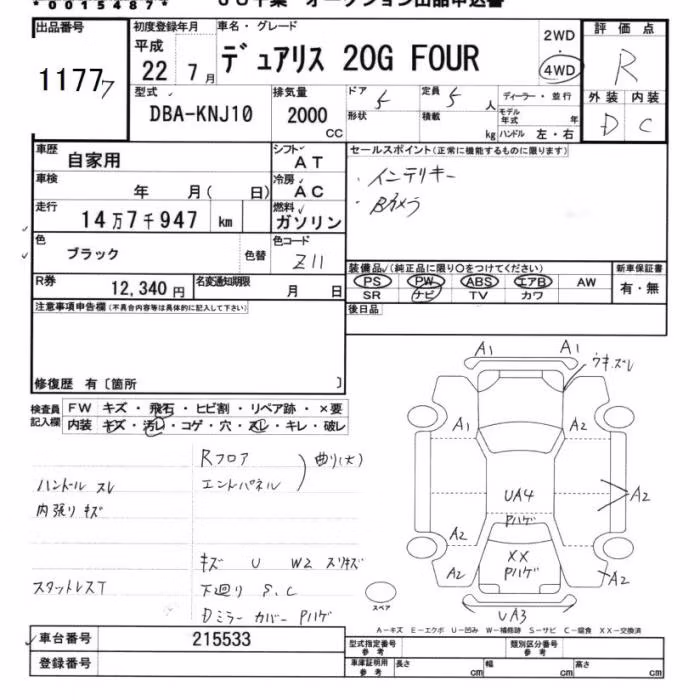 *00154847*
出品番号
11777
初度登録年月
平成
22 7月
車名・グレード
デュアリス 20G FOUR
2WD
・
4WD
評価点
R
外装 内装
D C
型式
DBA-KNJ10
排気量
2000
CC
ドア
5
定員
5 人
形状
積載
kg
ディーラー・並行
モデル年式 年
ハンドル 左・右
車歴
自家用
シフト
AT
車検
年 月( 日)
冷房
AC
走行
14万7千947 km
燃料
ガソリン
色
ブラック
色替
色コード
Z11
R券
12,340円
名変通知期限
月 日
セールスポイント(正常に機能するものに限ります)
・インテリキー
・Bカメラ
装備品(純正品に限り○をつけてください)
PS PW ABS エアB AW
SR ナビ TV カワ
新車保証書
有・無
後日品
注意事項申告欄(不具合内容等は具体的に記入して下さい)
修復歴 有〔箇所 〕
検査員
記入欄
FW キズ・飛石・ヒビ割・リペア跡・×要
内装 キズ・汚レ・コゲ・穴・スレ・キレ・破レ
Rフロア
エンドパネル
曲り(大)
ハンドル スレ
内張り キズ
キズ U W2 スリキズ
スタットレスT
下廻り S.C
Dミラー カバー Pハゲ
A1
A1
ウキ.ズレ
A1
A2
UA4
Pハゲ
A2
A2
XX
Pハゲ
A2
A2
UA3
スペア
A−キズ E−エクボ U−凹み W−補修跡 S−サビ C−腐食 XX−交換済
車台番号
215533
登録番号
型式指定番号
参考
類別区分番号
参考
車庫証明用
参考
長さ cm
幅 cm
高さ cm